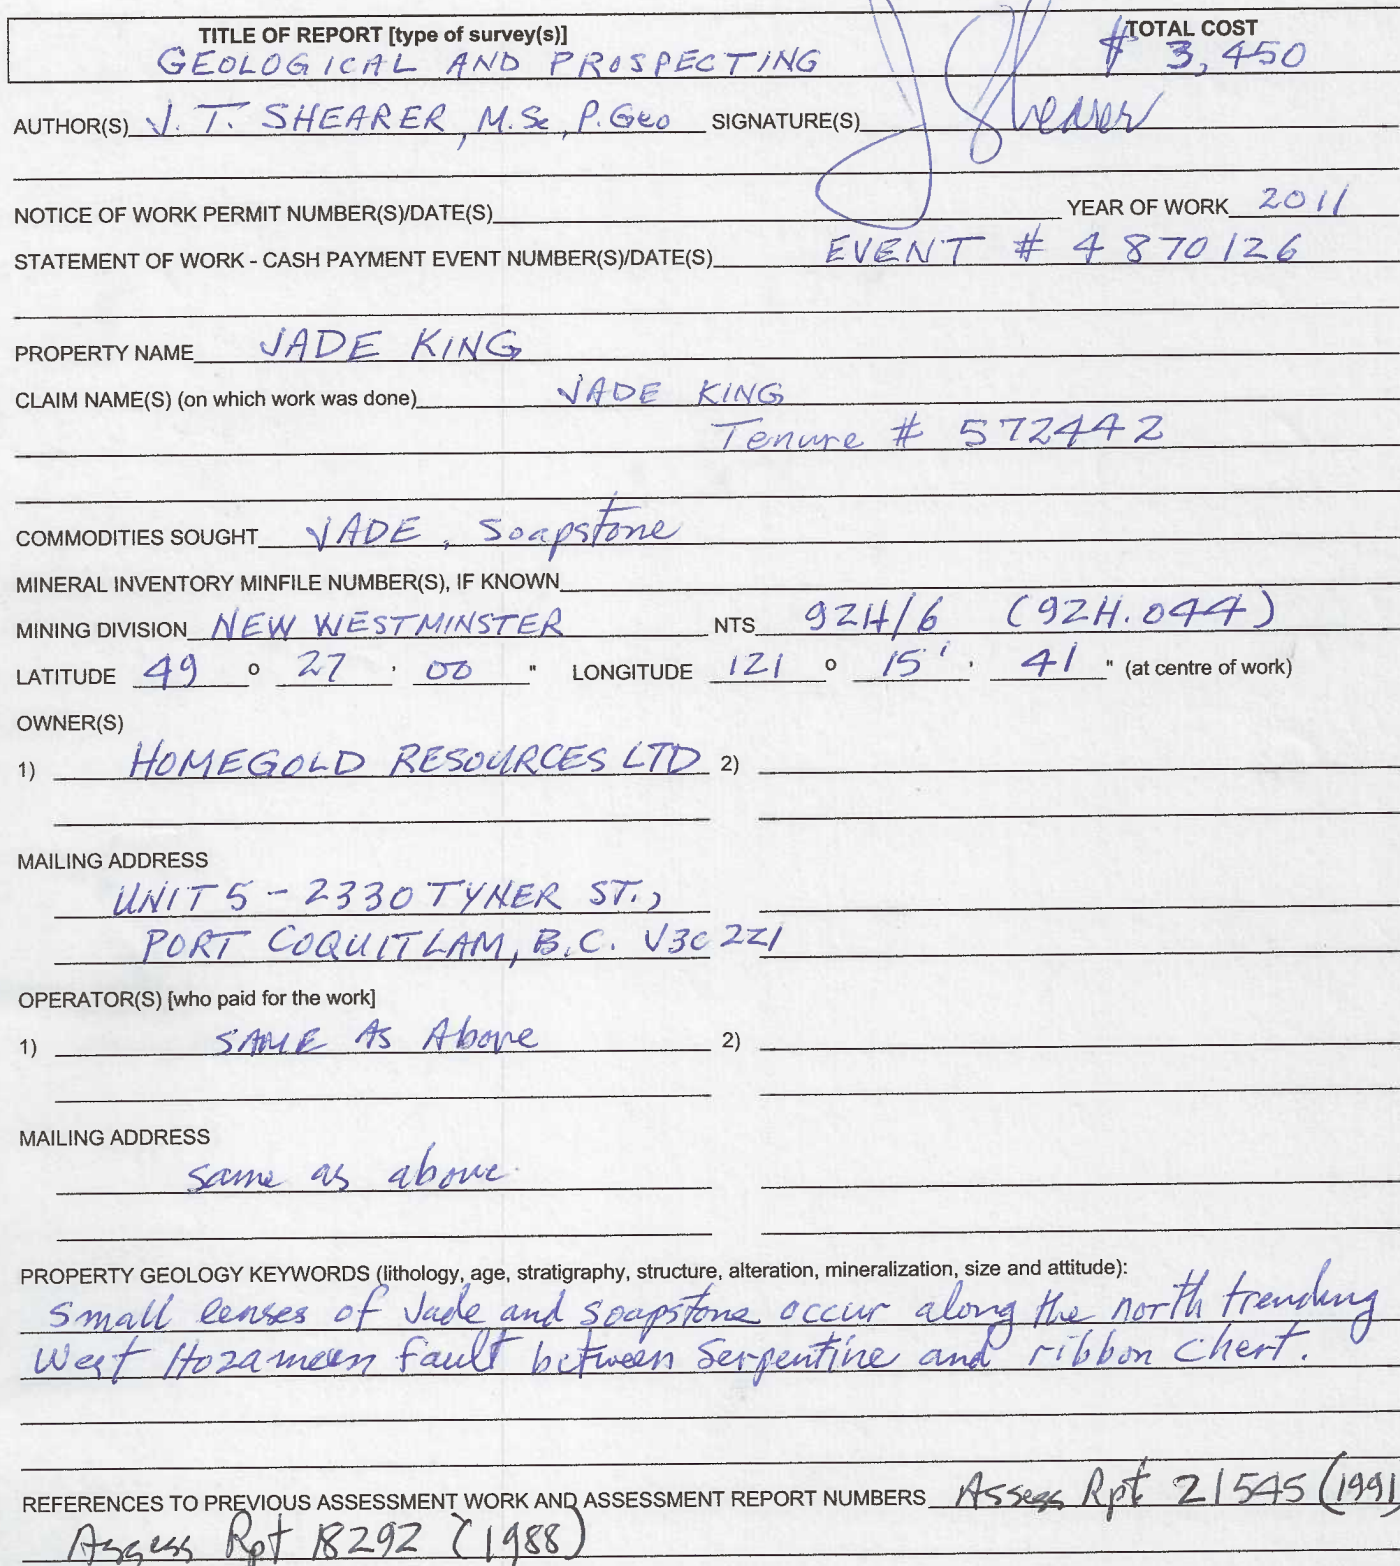 TITLE OF REPORT [type of survey(s)] TOTAL COST
GEOLOGICAL AND PROSPECTING $ 3,450
AUTHOR(S) J. T. SHEARER, M.Sc, P.Geo SIGNATURE(S) J Shearer
NOTICE OF WORK PERMIT NUMBER(S)/DATE(S) YEAR OF WORK 2011
STATEMENT OF WORK - CASH PAYMENT EVENT NUMBER(S)/DATE(S) EVENT # 4870126
PROPERTY NAME JADE KING
CLAIM NAME(S) (on which work was done) JADE KING
Tenure # 572442
COMMODITIES SOUGHT JADE, Soapstone
MINERAL INVENTORY MINFILE NUMBER(S), IF KNOWN
MINING DIVISION NEW WESTMINSTER NTS 92H/6 (92H.044)
LATITUDE 49 o 27 ' 00 " LONGITUDE 121 o 15' ' 41 " (at centre of work)
OWNER(S)
1) HOMEGOLD RESOURCES LTD 2)
MAILING ADDRESS
UNIT 5 - 2330 TYNER ST.,
PORT COQUITLAM, B.C. V3C 2Z1
OPERATOR(S) [who paid for the work]
1) SAME AS Above 2)
MAILING ADDRESS
same as above
PROPERTY GEOLOGY KEYWORDS (lithology, age, stratigraphy, structure, alteration, mineralization, size and attitude):
Small lenses of Jade and soapstone occur along the north trending
West Hozameen fault between Serpentine and ribbon chert.
REFERENCES TO PREVIOUS ASSESSMENT WORK AND ASSESSMENT REPORT NUMBERS Assess Rpt 21545 (1991)
Assess Rpt 18292 (1988)